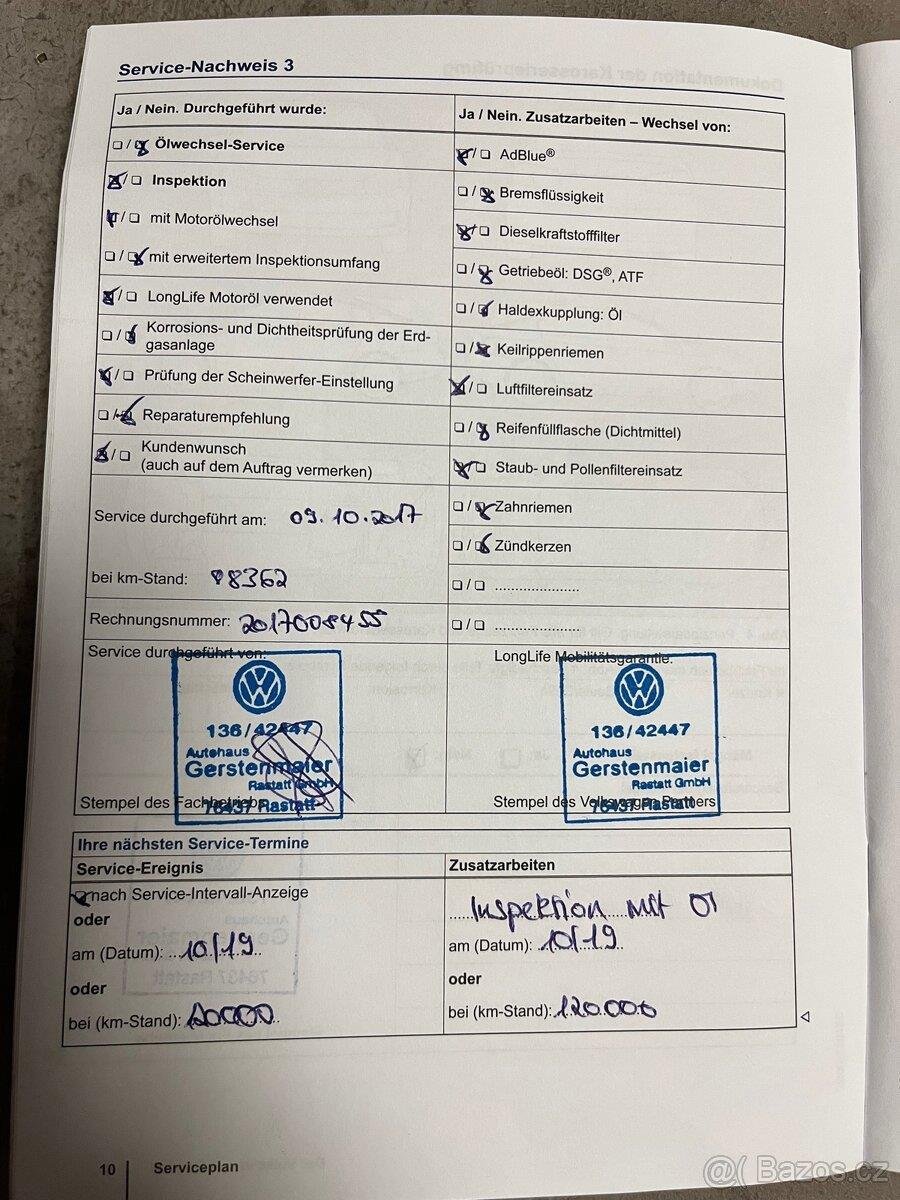 Service-Nachweis 3
Ja / Nein. Durchgeführt wurde:
/ Ölwechsel-Service
/ Inspektion
/ mit Motorölwechsel
/ mit erweitertem Inspektionsumfang
/ LongLife Motoröl verwendet
/ Korrosions- und Dichtheitsprüfung der Erd-
gasanlage
/ Prüfung der Scheinwerfer-Einstellung
/ Reparaturempfehlung
/ Kundenwunsch
(auch auf dem Auftrag vermerken)
Service durchgeführt am: 09.10.2017
bei km-Stand: 98362
Rechnungsnummer: 2017008455
Service durchgeführt von:
VW
136/42447
Autohaus
Gerstenmaier
Rastatt GmbH
76437 Rastatt
Stempel des Fachbetriebs
Ja / Nein. Zusatzarbeiten – Wechsel von:
/ AdBlue®
/ Bremsflüssigkeit
/ Dieselkraftstofffilter
/ Getriebeöl: DSG®, ATF
/ Haldexkupplung: Öl
/ Keilrippenriemen
/ Luftfiltereinsatz
/ Reifenfüllflasche (Dichtmittel)
/ Staub- und Pollenfiltereinsatz
/ Zahnriemen
/ Zündkerzen
/ .....................
/ .....................
LongLife Mobilitätsgarantie:
VW
136/42447
Autohaus
Gerstenmaier
Rastatt GmbH
76437 Rastatt
Stempel des Volkswagen Partners
Ihre nächsten Service-Termine
Service-Ereignis
nach Service-Intervall-Anzeige
oder
am (Datum): 10/19
oder
bei (km-Stand):
Zusatzarbeiten
Inspektion mit Öl
am (Datum): 10/19
oder
bei (km-Stand): 120.000
10 Serviceplan
@( Bazos.cz